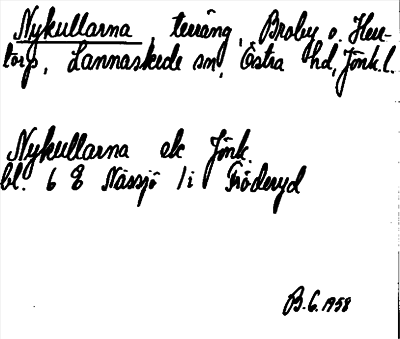 Nykullarna, terräng, Broby o. Her-
torp, Lannaskede sn, Östra hd, Jönk.l.
Nykullarna ek Jönk.
bl. 6 E Nässjö 1 i Fröderyd
B.G. 1958